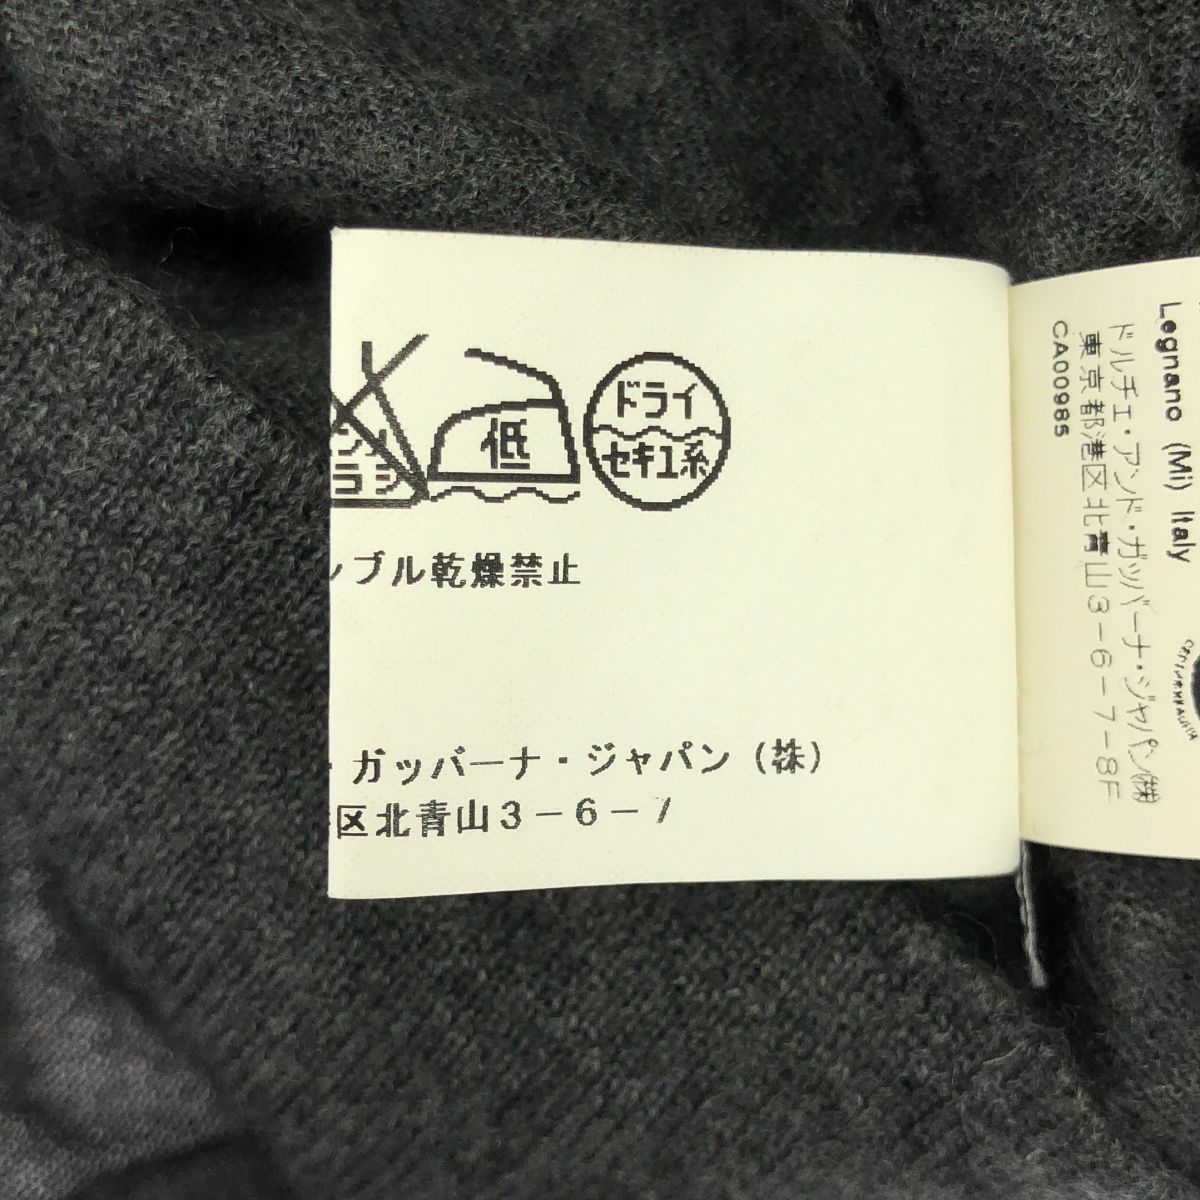 低
ドライ
セキユ系
ンブル乾燥禁止
・ガッバーナ・ジャパン(株)
区北青山3-6-7
Legnano (Mi) Italy
ドルチェ・アンド・ガッバーナ・ジャパン㈱
東京都港区北青山3-6-7-8F
CA00985